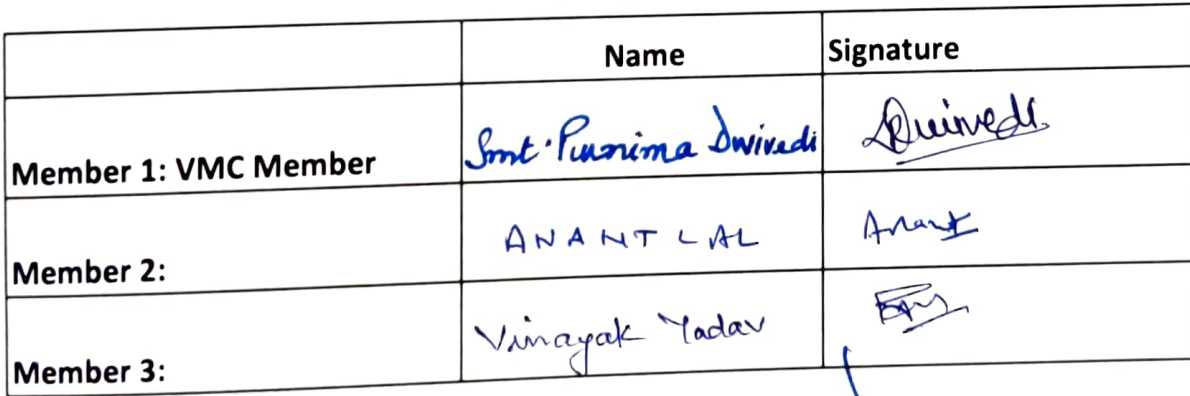 Name Signature
Member 1: VMC Member Smt. Purnima Dwivedi Dwivedi
Member 2: ANANT LAL Anant
Member 3: Vinayak Yadav